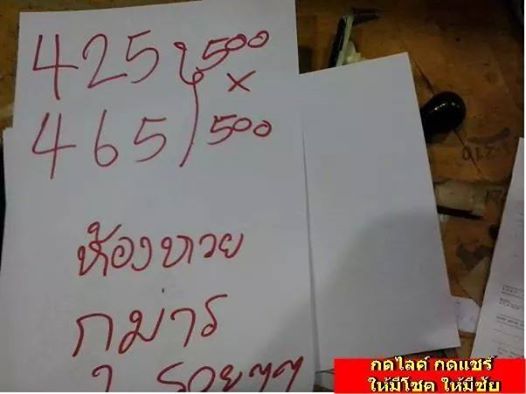 425 500
×
465 500
ห้องหวย
กมาร
รวยๆๆ
กดไลค์ กดแชร์
ให้มีโชค ให้มีชัย